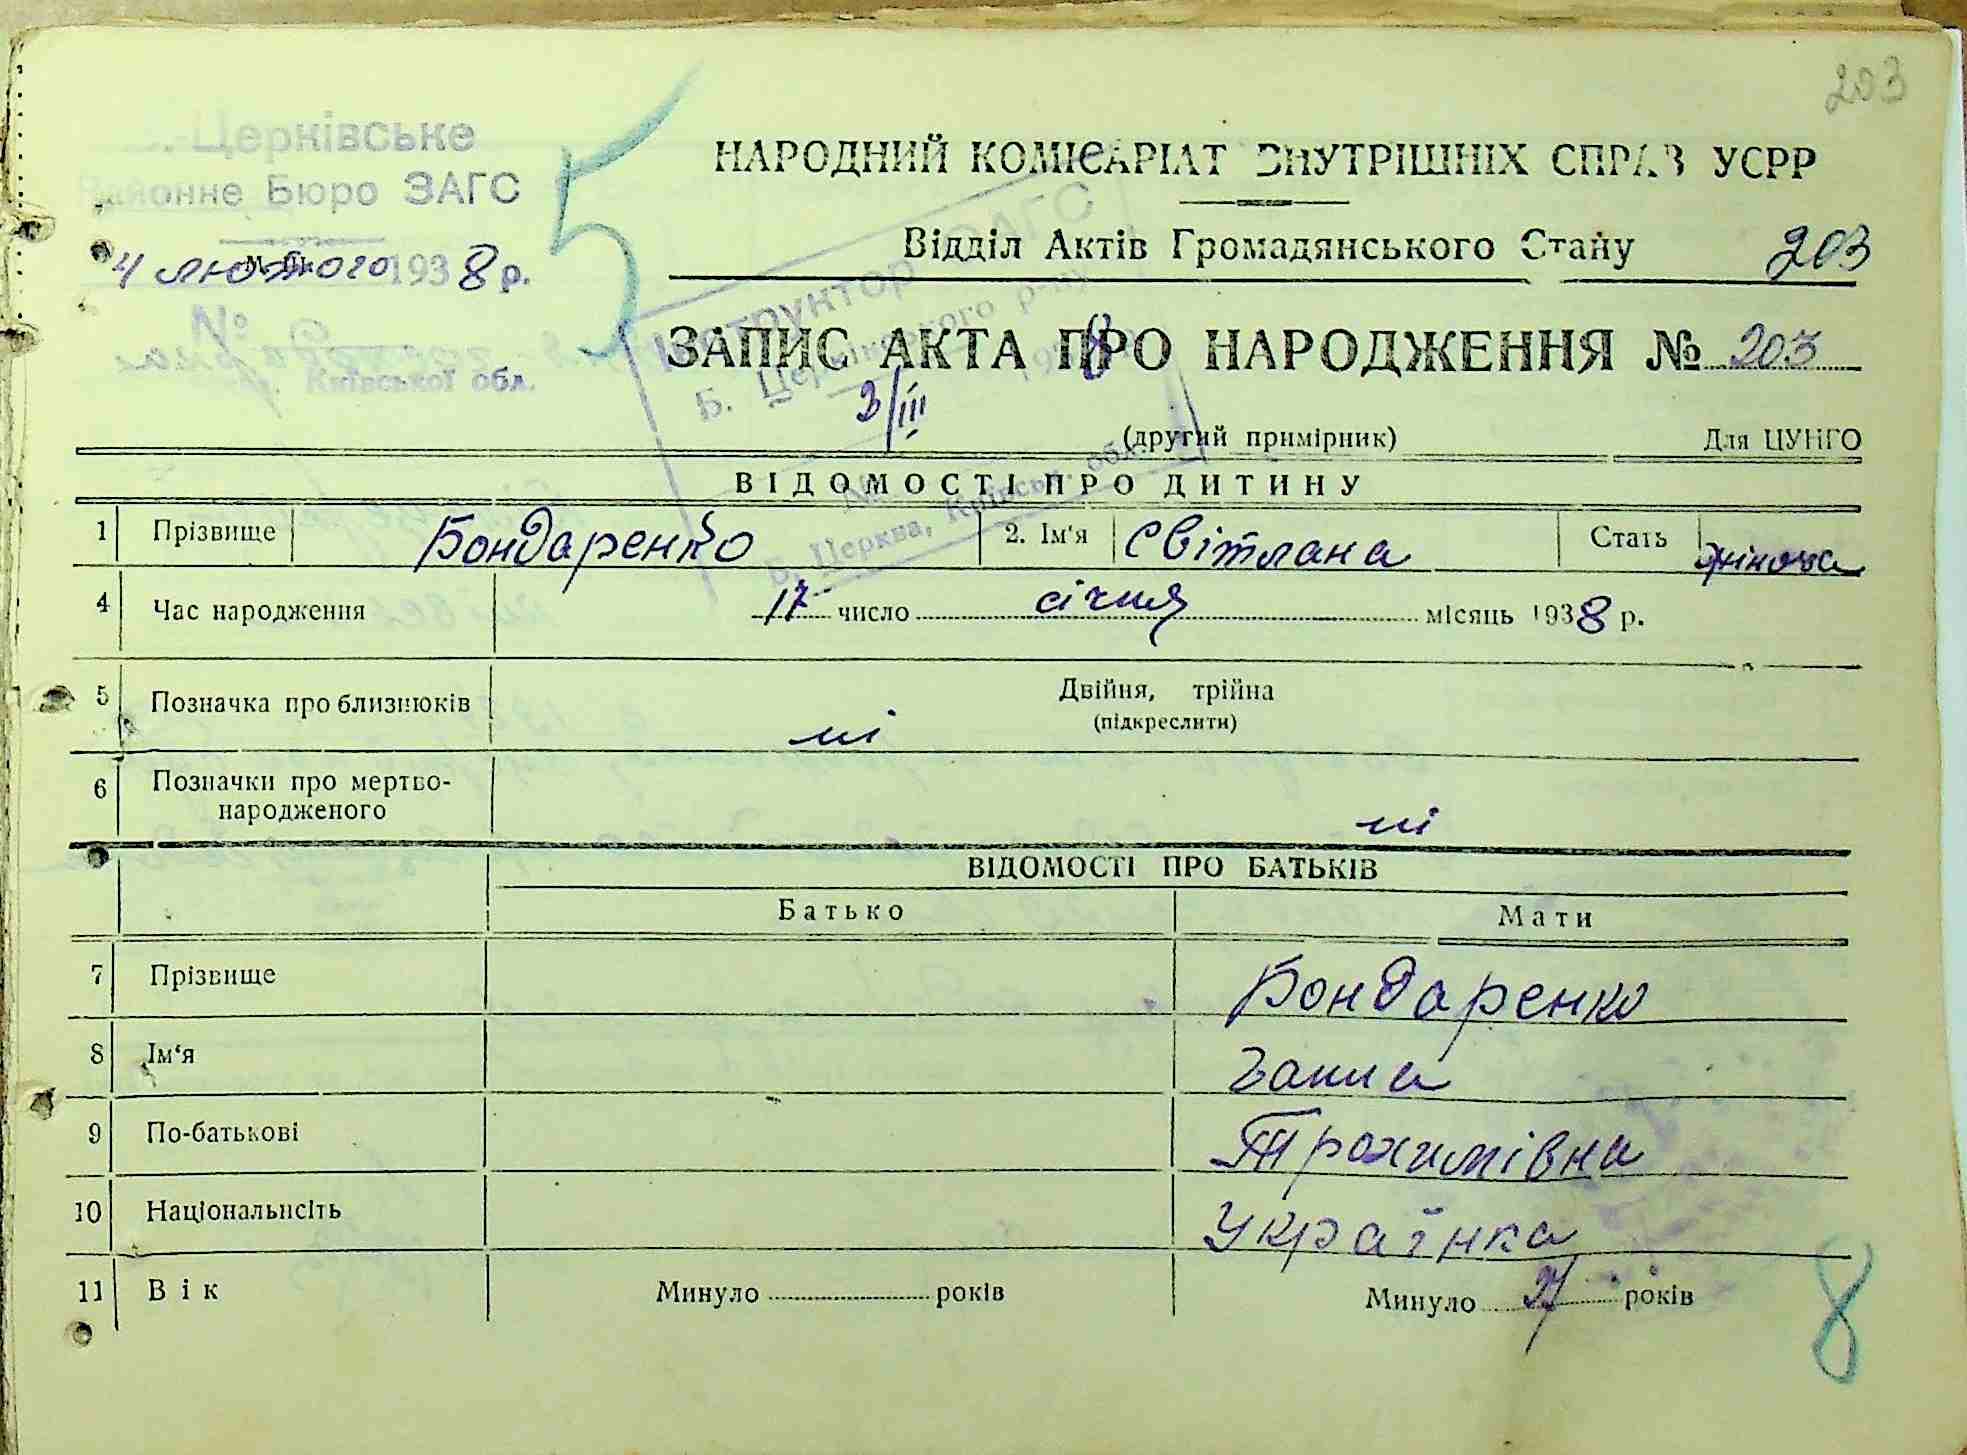 203
-Церківське
Районне Бюро ЗАГС
4 лютого 1938 р.
Київської обл.
НАРОДНИЙ КОМІСАРІАТ ВНУТРІШНІХ СПРАВ УСРР
Відділ Актів Громадянського Стану 203
Інструктор ЗАГС
Б. Церківського р-ну
3/III
Б. Церква, Київськ. обл.
ЗАПИС АКТА ПРО НАРОДЖЕННЯ № 203
(другий примірник) Для ЦУНГО
ВІДОМОСТІ ПРО ДИТИНУ
1 Прізвище Бондаренко 2. Ім'я Світлана Стать жіноча
4 Час народження 17 число січня місяць 1938 р.
5 Позначка про близнюків Двійня, трійна
(підкреслити)
ні
6 Позначки про мертво-
народженого ні
ВІДОМОСТІ ПРО БАТЬКІВ
Батько Мати
7 Прізвище Бондаренко
8 Ім'я Ганна
9 По-батькові Трохимівна
10 Національність Українка
11 Вік Минуло років Минуло 27 років
5
8